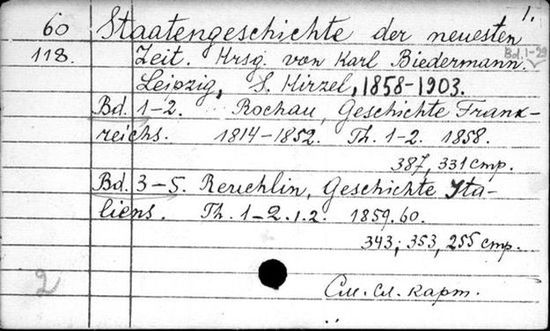 1.
60 Staatengeschichte der neuesten
118. Zeit. Hrsg. von Karl Biedermann. Bd. 1-29
Leipzig, S. Hirzel, 1858-1903.
Bd. 1-2. Rochau, Geschichte Frank-
reichs. 1814-1852. Th. 1-2. 1858.
387, 331 стр.
Bd. 3-5. Reuchlin, Geschichte Ita-
liens. Th. 1-2.1.2. 1859.60.
343; 353, 255 стр.
2
См. сл. карт.